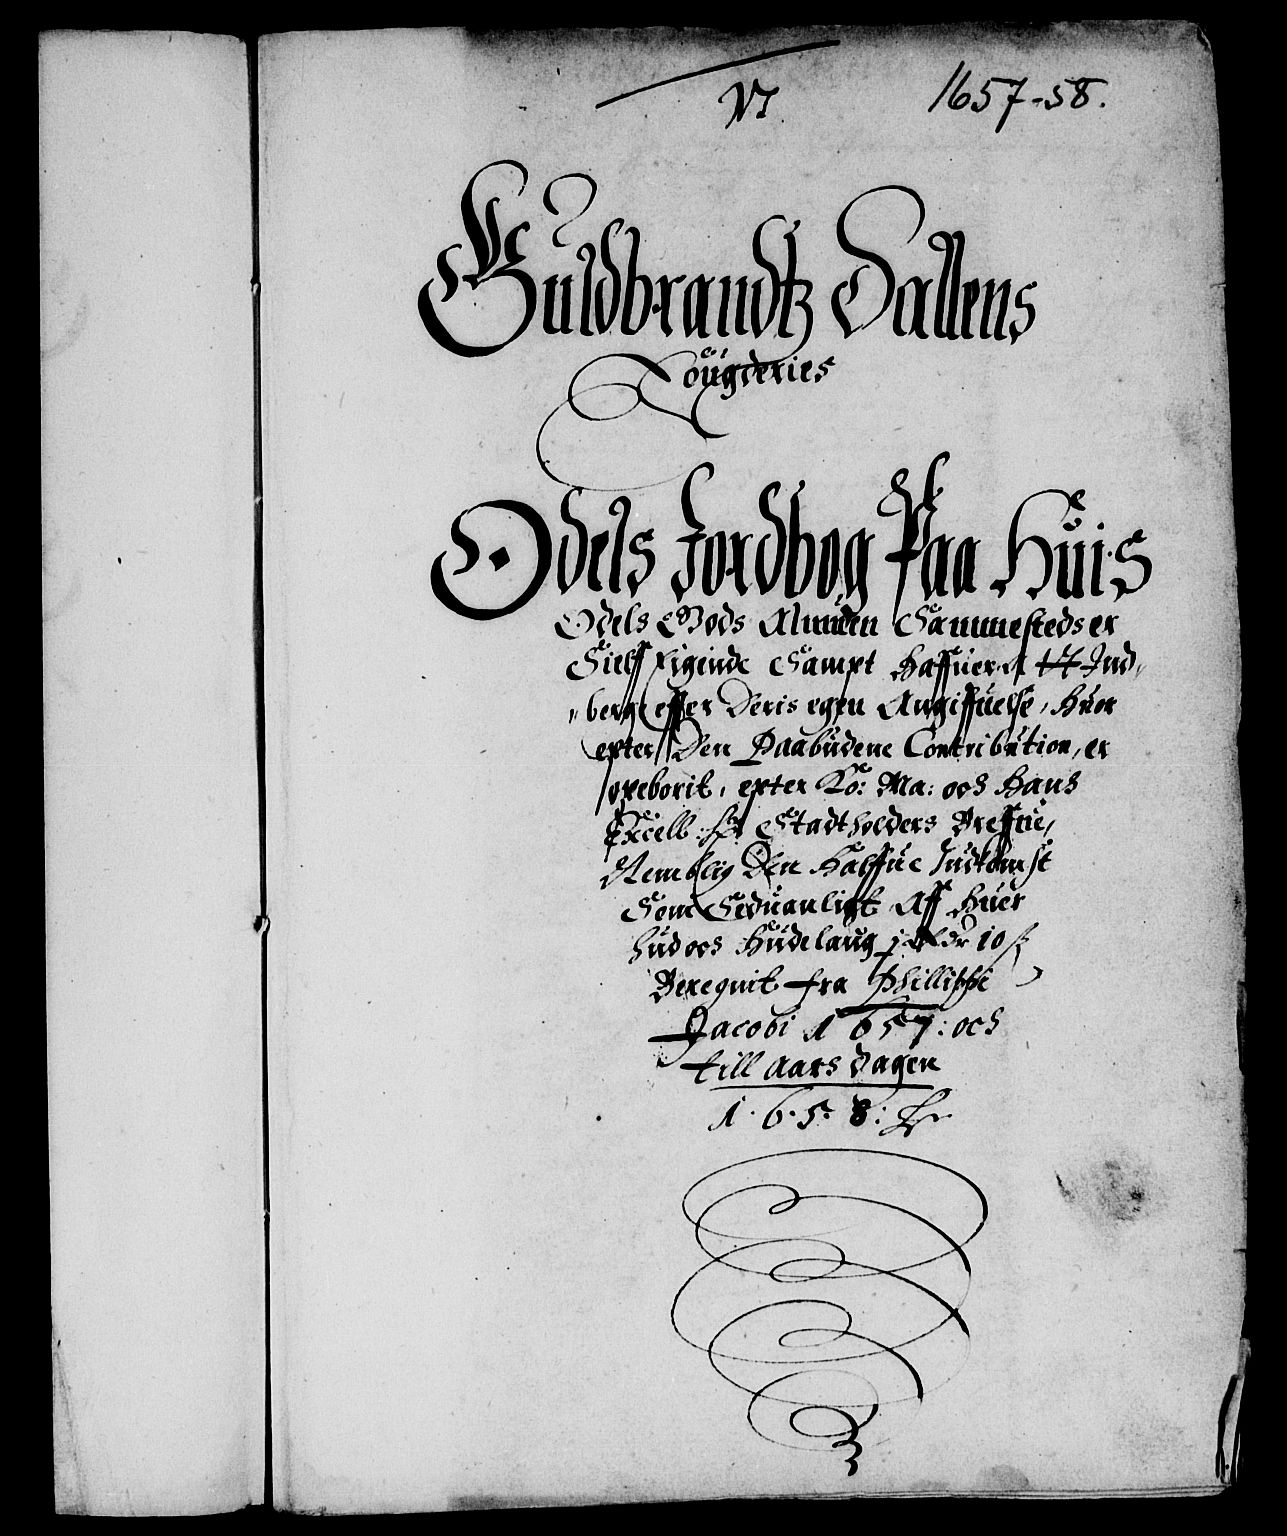 VI 1657-58.
Guldbrandtz Dallens
Fougderies
Odels Jordbog Paa Huis
Odels Gods Almuden Sammesteds er
Sielff Eigende Sampt Haffuer
berge effter Deris egen Angiffuelse, Huor
epter Den Paabudene Contribution, er
opeborit, epter Ko: Ma: och Hans
Excell: Stadtholders Breffue,
Nemblig Den Halffue Indkomst
Som Seduanligt Aff Huer
hud och Hudelaug 1 Rdr 10 ß
Beregnit fra Phillippi
Jacobi 1657: och
till Aars dagen
1·6·5·8: